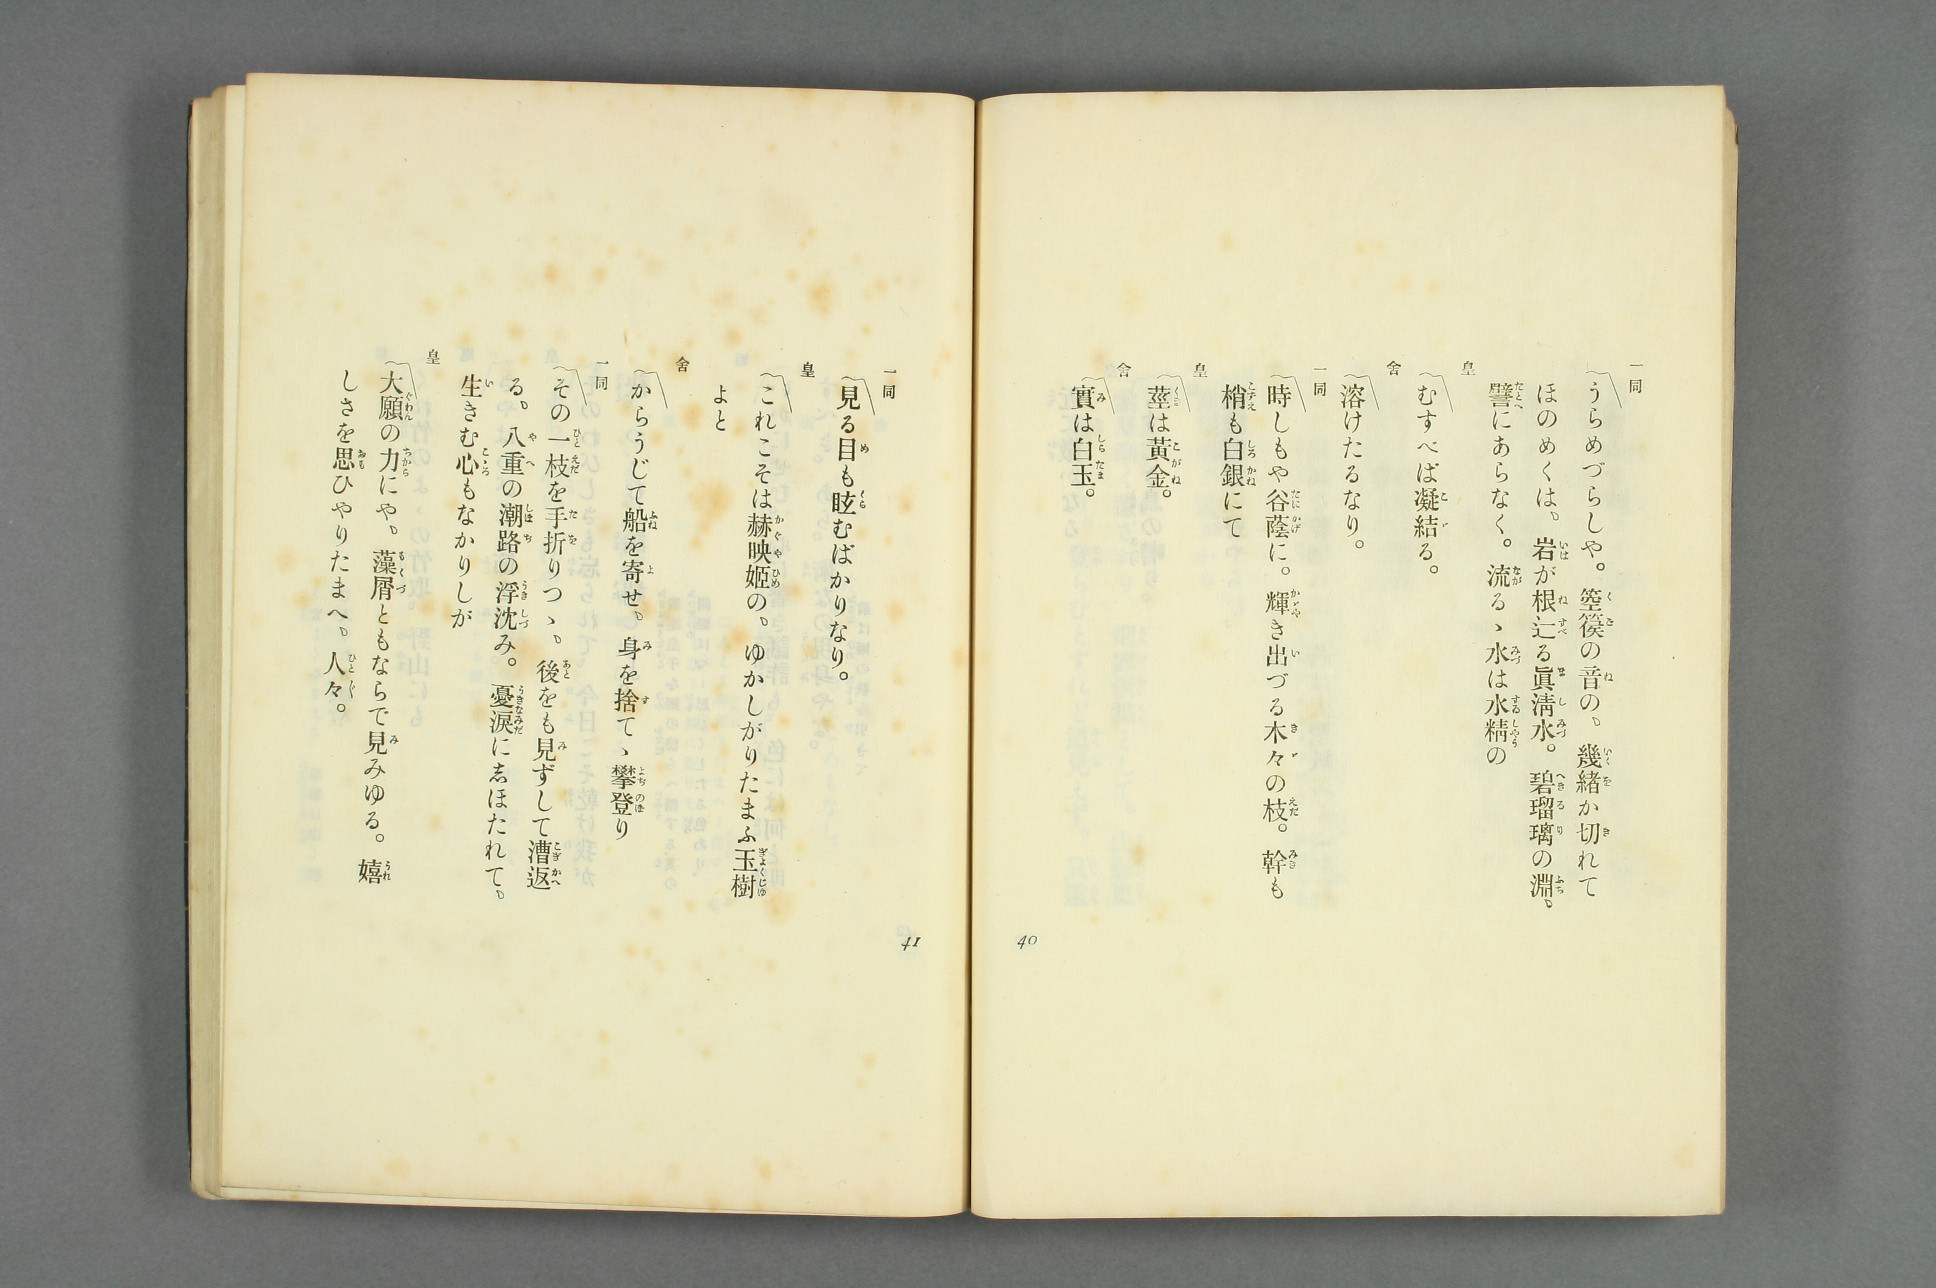 一同
〽うらめづらしや。箜篌の音の、幾緒か切れて
ほのめくは、岩が根辷る眞淸水。碧瑠璃の淵、
譬にあらなく。流るゝ水は水精の
皇
〽むすべば凝結る。
舍
〽溶けたるなり。
一同
〽時しもや谷蔭に。輝き出づる木々の枝。幹も
梢も白銀にて
皇
〽莖は黃金。
舍
〽實は白玉。
40
一同
〽見る目も眩むばかりなり。
皇
〽これこそは赫映姬の、ゆかしがりたまふ玉樹
よと
舍
〽からうじて船を寄せ、身を捨てゝ攀登り
一同
〽その一枝を手折りつゝ、後をも見ずして漕返
る。八重の潮路の浮沈み。憂淚に志ほたれて、
生きむ心もなかりしが
皇
〽大願の力にや、藻屑ともならで見みゆる。嬉
しさを思ひやりたまへ、人々。
41